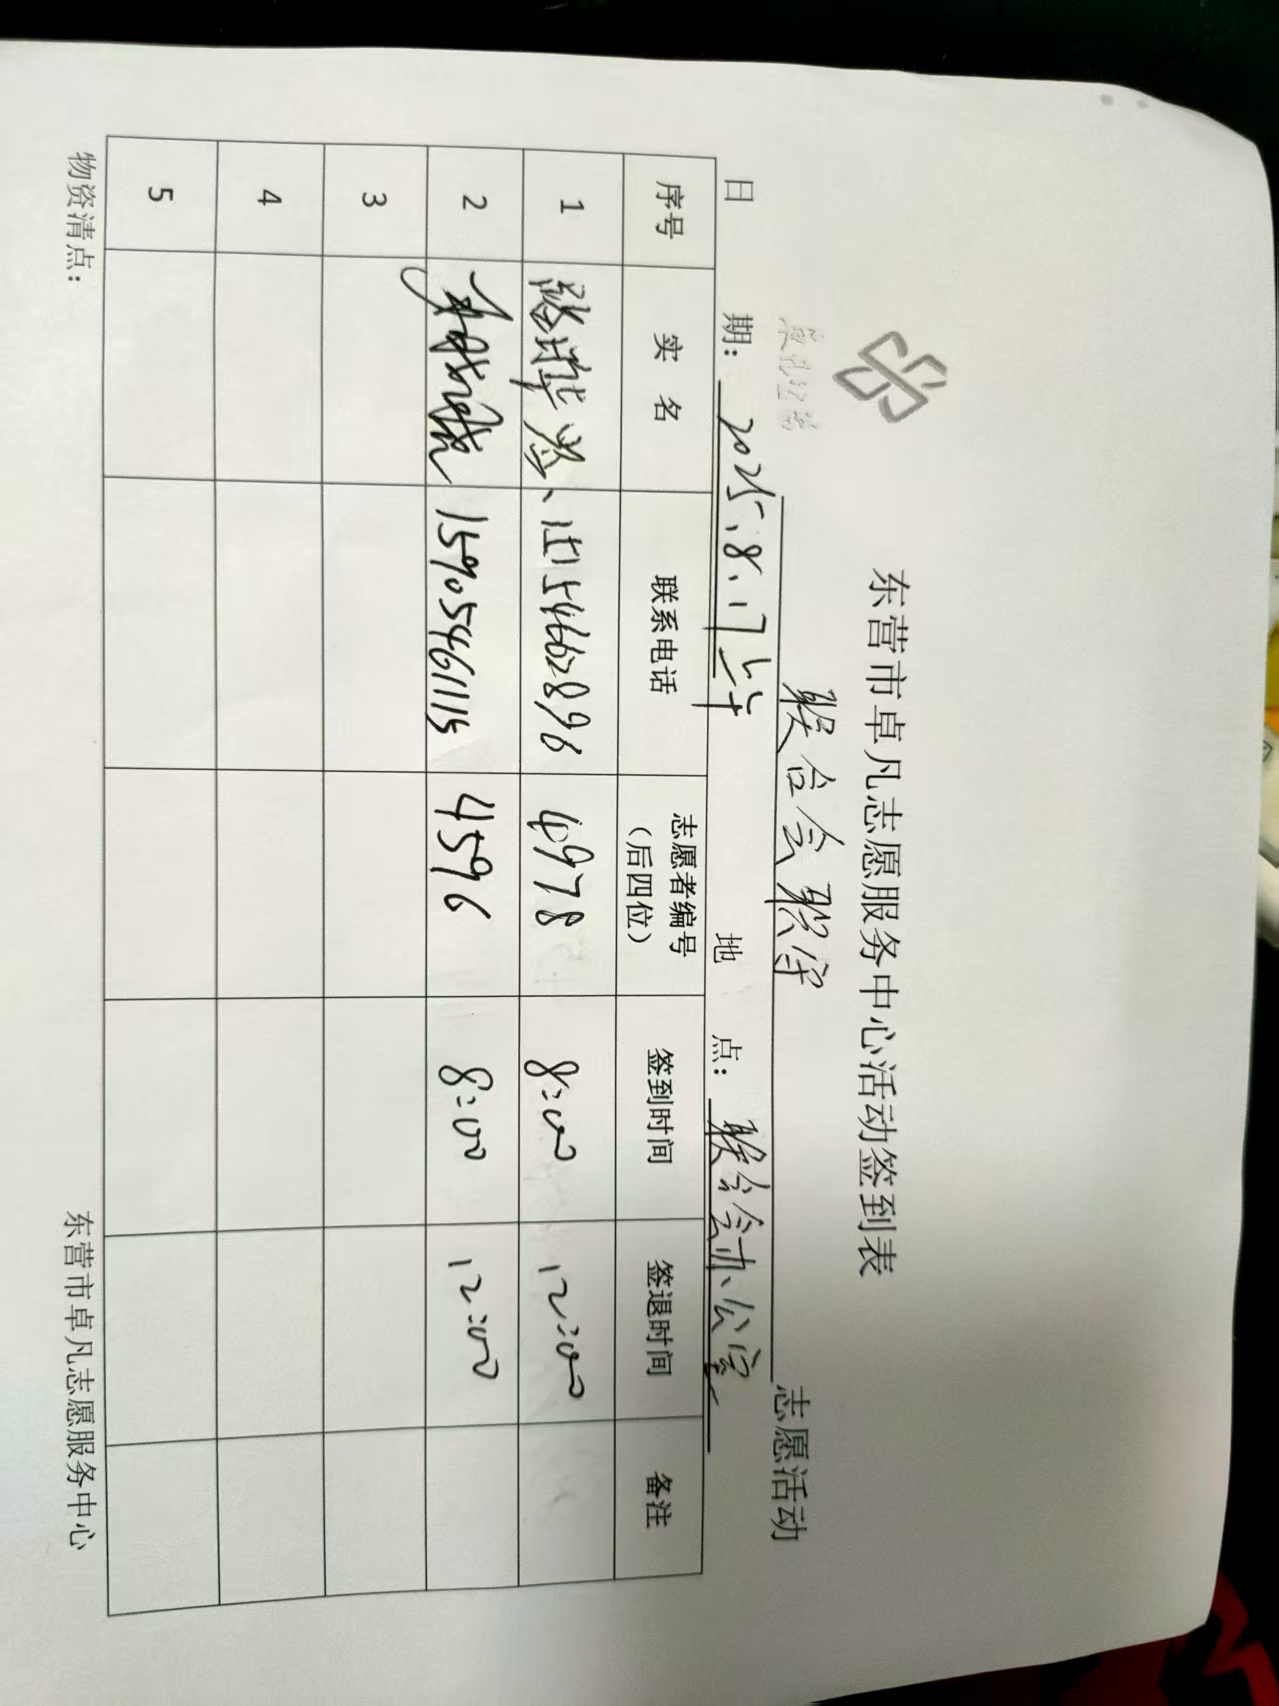 东营市卓凡志愿服务中心活动签到表
联合会职守 志愿活动
日 期： 2025.8.17 上午 地 点： 联合会办公室
序号 实 名 联系电话 志愿者编号（后四位） 签到时间 签退时间 备注
1 4978 8:00 12:00
2 15905461115 4596 8:00 12:00
3
4
5
物资清点： 东营市卓凡志愿服务中心